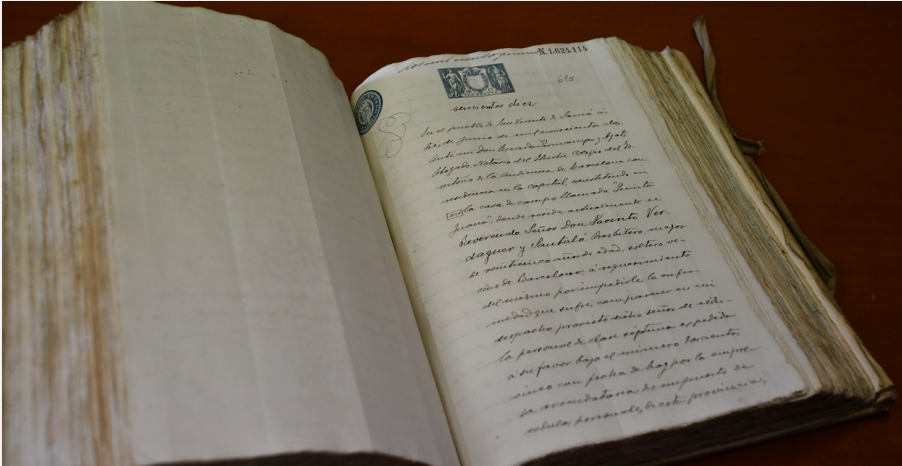 N. 1.624.114
610
seiscientos diez
En el pueblo de San Vicente de Sarriá á
de Junio de mil novecientos dos.
Ante mí Don Ricardo Permanyer y Ayats,
Abogado, Notario del Ilustre Colegio del te-
rritorio de la Audiencia de Barcelona con
residencia en la capital, constituido en
la casa de campo llamada "Quinta
Juana", donde reside actualmente el
Reverendo Señor Don Jacinto Ver-
daguer y Santaló Presbítero, mayor
de veinticinco años de edad, soltero, ve-
cino de Barcelona, á requerimiento
del mismo por impedirle la enfer-
medad que sufre comparecer en mi
despacho, provisto dicho señor de cédu-
la personal de clase séptima expedida
á su favor bajo el número doscientos
cinco con fecha de hoy por la empre-
sa arrendataria de impuesto de
cédulas personales de esta provincia,